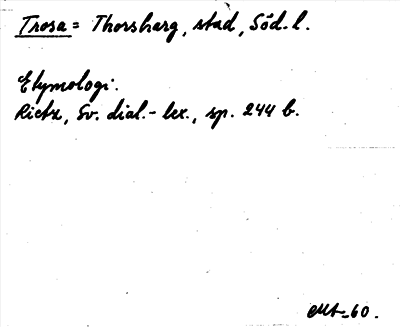 Trosa = Thorsharg, stad, Söd. l.
Etymologi.
Rietz, Sv. dial.-lex., sp. 244 b.
-60.